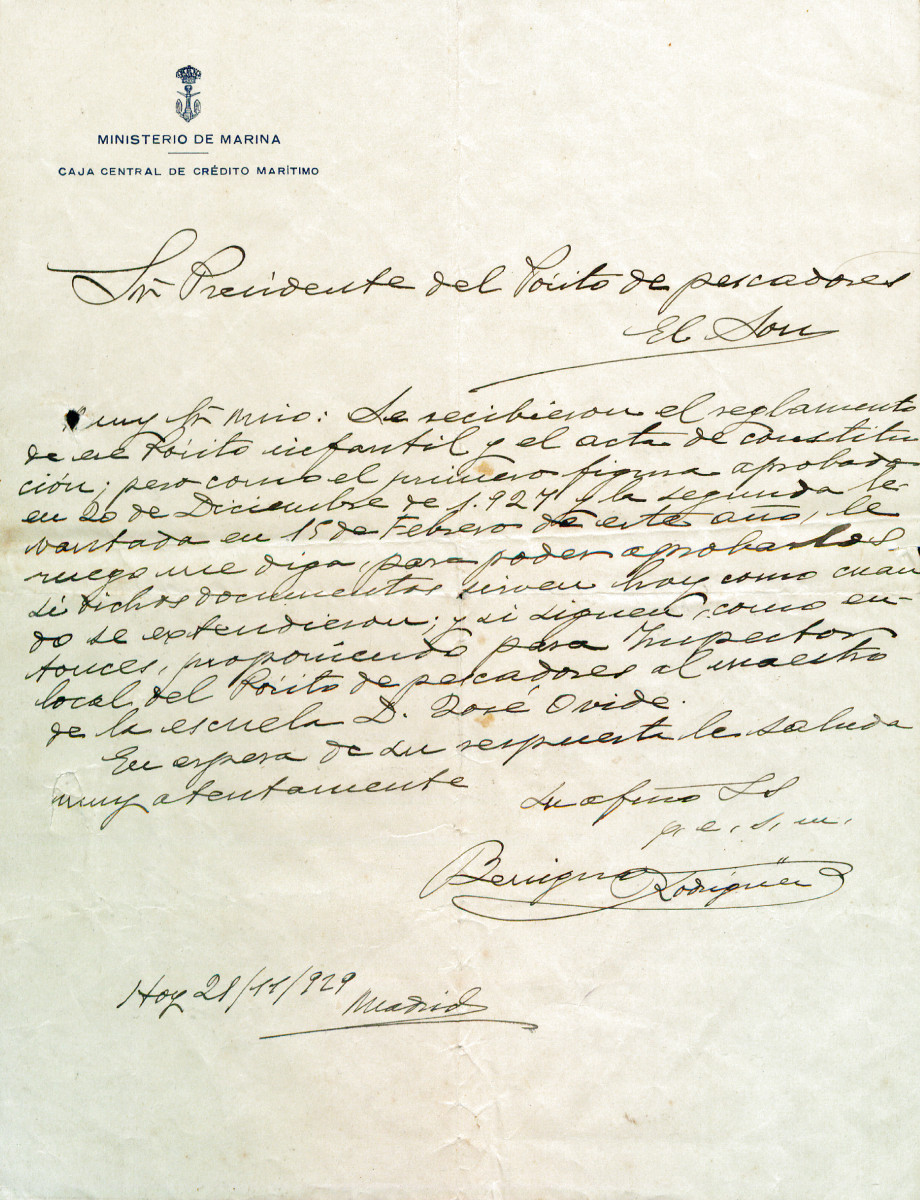 MINISTERIO DE MARINA
CAJA CENTRAL DE CRÉDITO MARÍTIMO
Sr. Presidente del Pósito de pescadores
El Son
Muy Sr. mio: Se recibieron el reglamento
de ese Pósito infantil y el acta de constitu
ción; pero como el primero figura aprobado
en 20 de Diciembre de 1.927 y la segunda le-
vantada en 15 de Febrero de este año, le
ruego me diga, para poder aprobarlos,
si dichos documentos sirven hoy como cuan
do se extendieron; y si siguen, como en-
tonces, proponiendo para Inspector
local del Pósito de pescadores al maestro
de la escuela D. José Ovide.
En espera de su respuesta le saluda
muy atentamente
su afmo SS
q. e. s. m.
Benigno Rodríguez
Hoy 28/11/929
Madrid